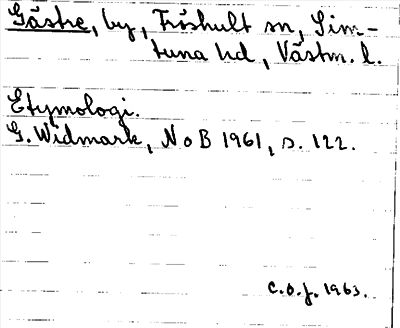 Gästre, by, Fröshult sn, Sim-
tuna hd, Västm. l.
Etymologi.
G. Widmark, NoB 1961, s. 122.
C.O.J. 1963.